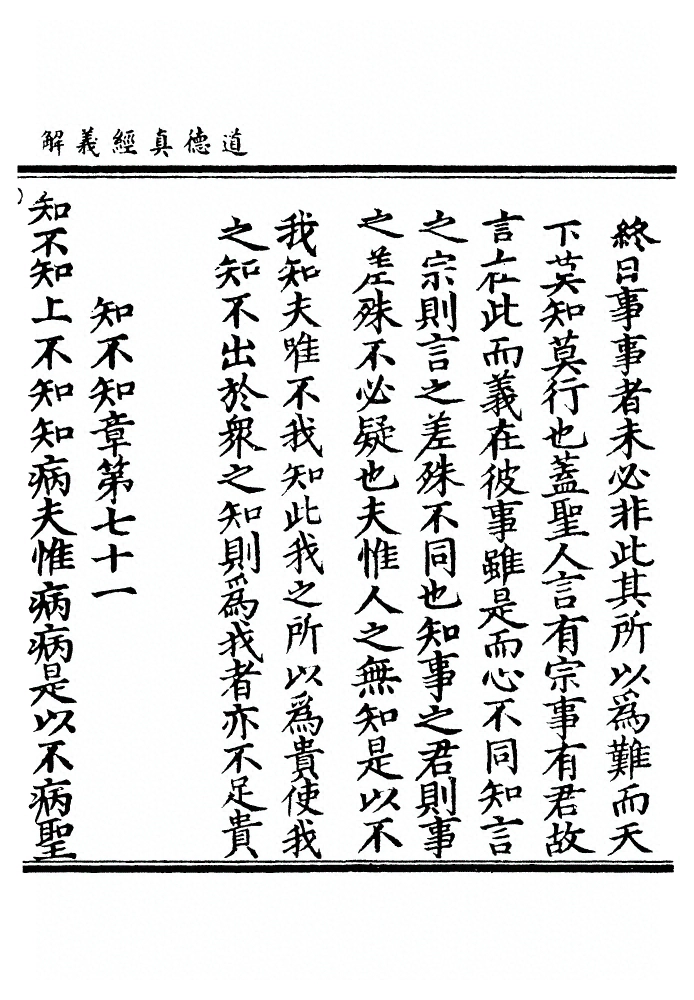 道德真經義解
終日事事者未必非此其所以為難而天
下莫知莫行也蓋聖人言有宗事有君故
言在此而義在彼事雖是而心不同知言
之宗則言之差殊不同也知事之君則事
之差殊不必疑也夫惟人之無知是以不
我知夫唯不我知此我之所以為貴使我
之知不出於衆之知則為我者亦不足貴
知不知章第七十一
知不知上不知知病夫惟病病是以不病聖